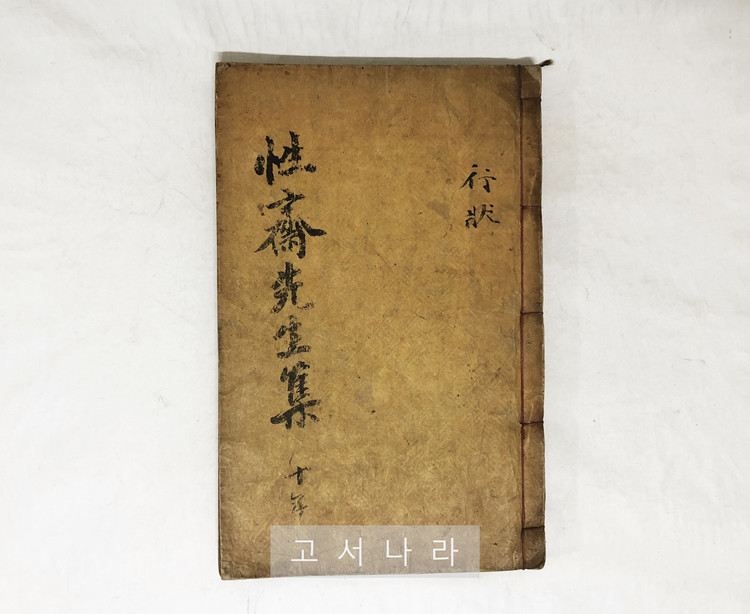 行狀
性齋先生集
고서나라